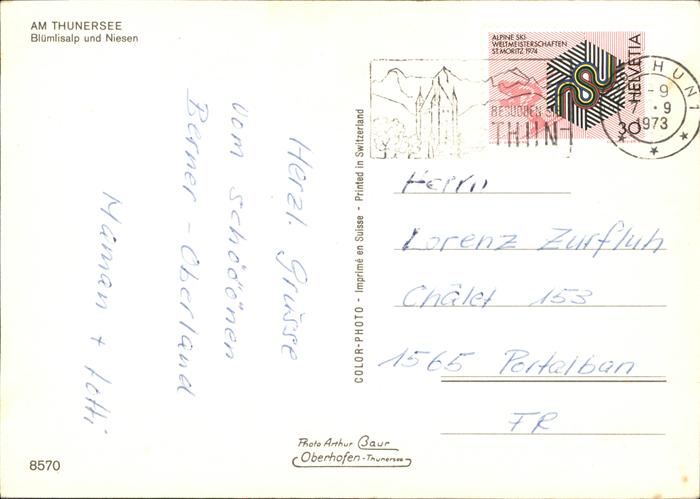 AM THUNERSEE
Blümlisalp und Niesen
Herzl. Grüsse
vom schööönen
Berner - Oberland
Maman +
COLOR-PHOTO - Imprimé en Suisse - Printed in Switzerland
ALPINE SKI-
WELTMEISTERSCHAFTEN
ST. MORITZ 1974
HELVETIA
30
BESUCHEN SIE
THUN
THUN 1
-9
.9
1973
Herrn
Lorenz Zurfluh
Châlet 153
1565 Portalban
FR
Photo Arthur Baur
Oberhofen-Thunersee
8570